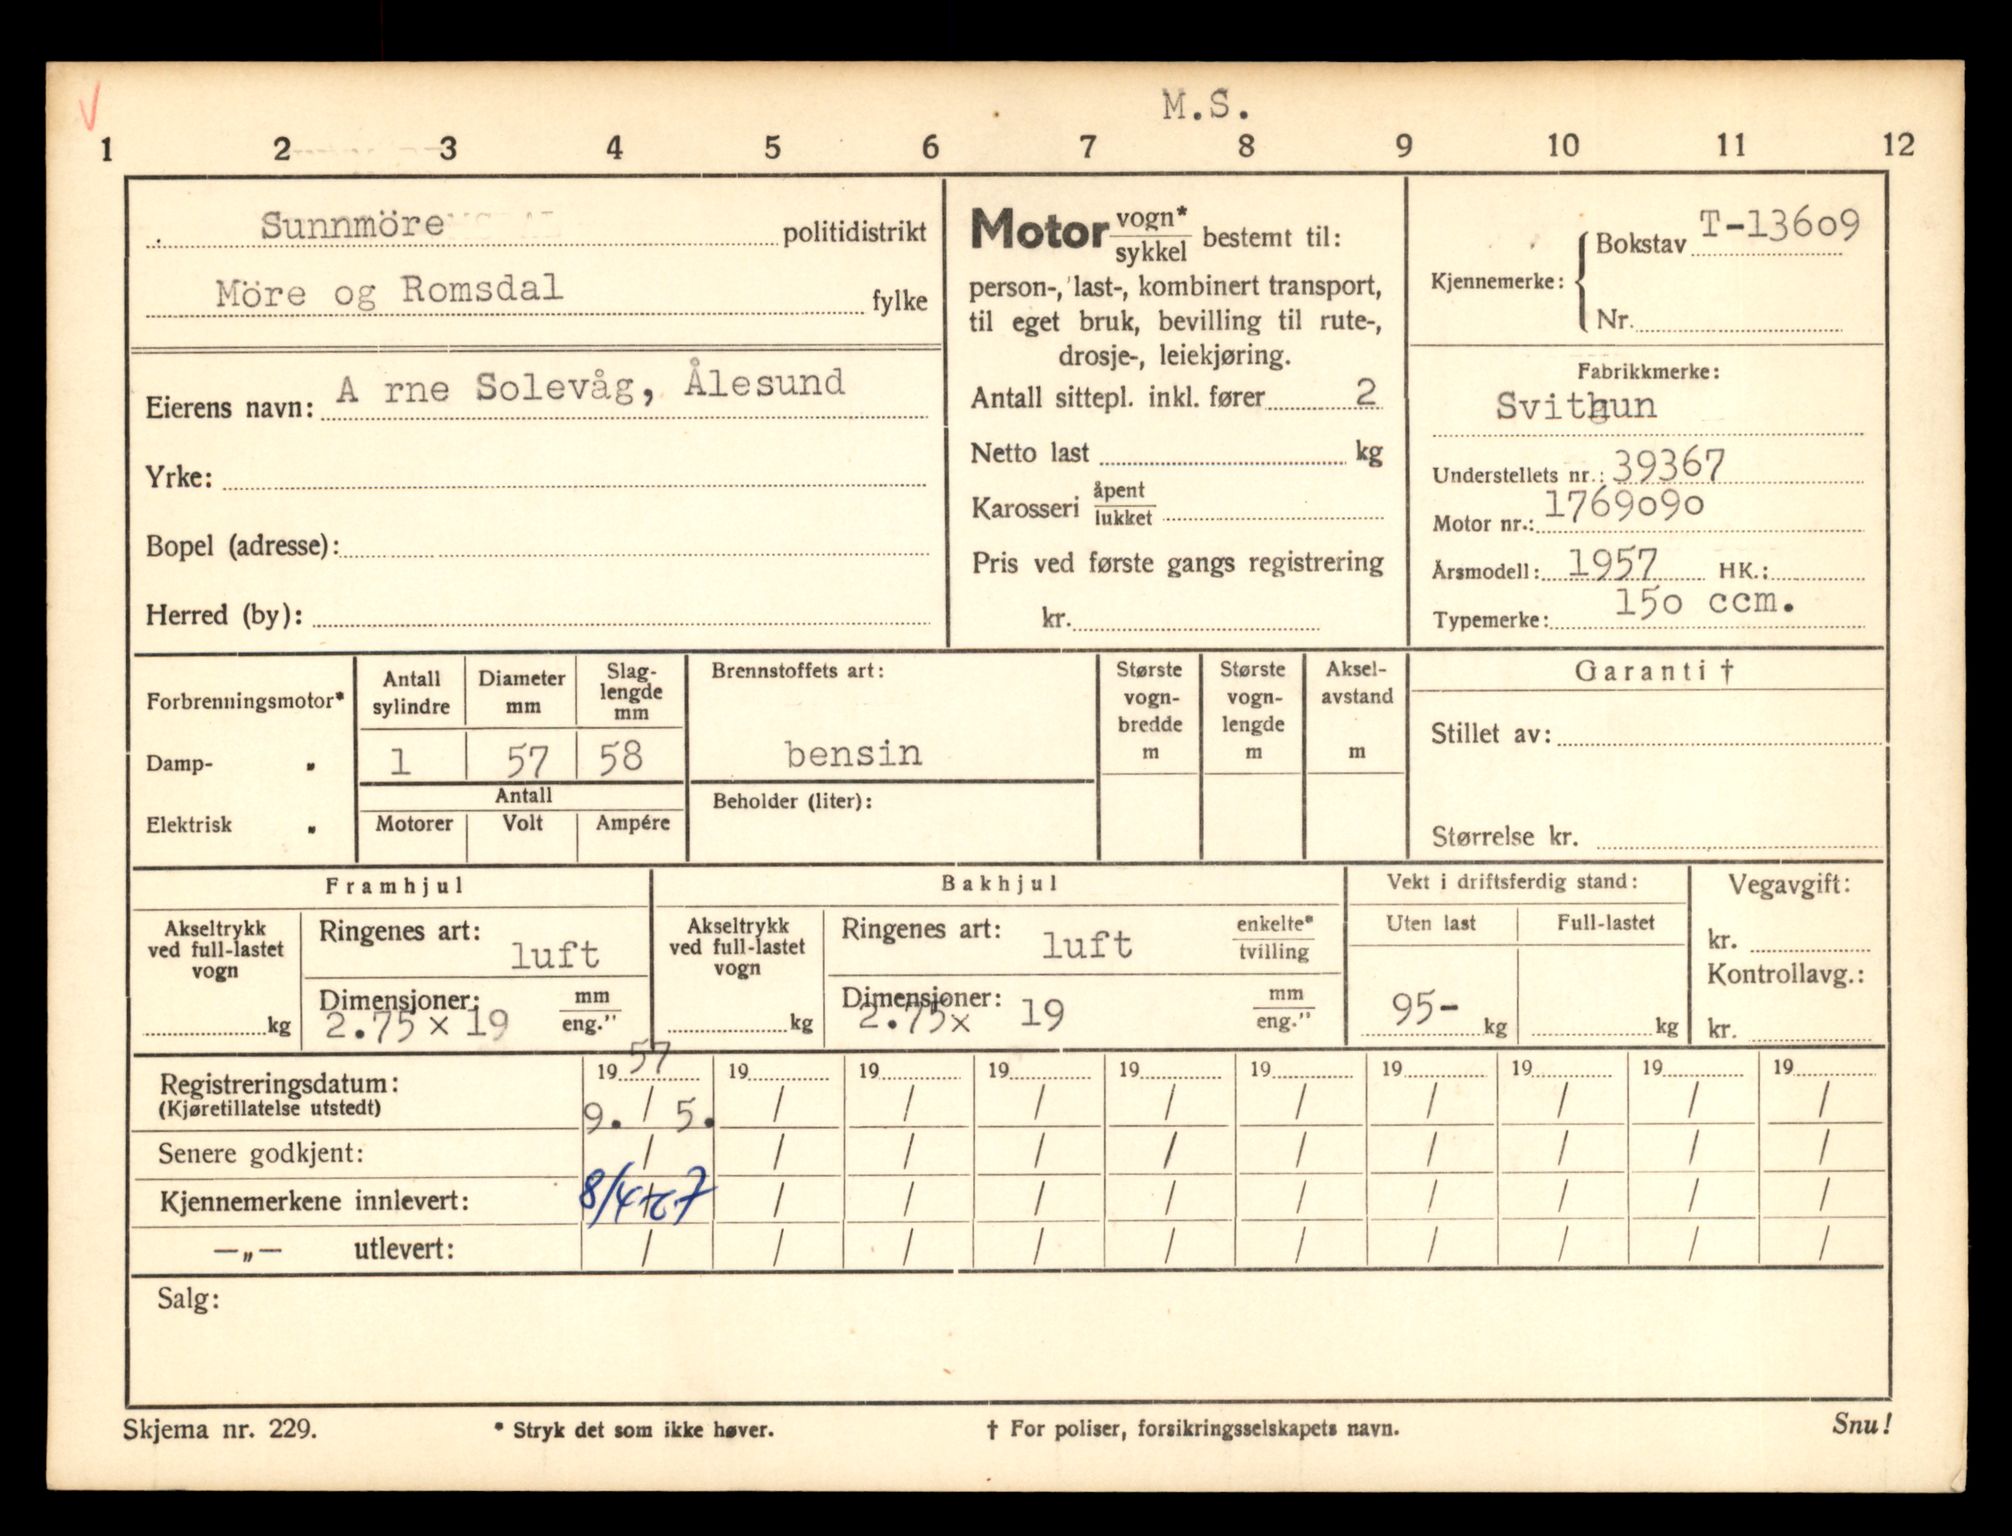 M.S.
1 2 3 4 5 6 7 8 9 10 11 12
Sunnmöre politidistrikt
Möre og Romsdal fylke
Eierens navn: A rne Solevåg, Ålesund
Yrke:
Bopel (adresse):
Herred (by):
Motor vogn* / sykkel bestemt til:
person-, last-, kombinert transport,
til eget bruk, bevilling til rute-,
drosje-, leiekjøring.
Antall sittepl. inkl. fører 2
Netto last kg
Karosseri åpent / lukket
Pris ved første gangs registrering
kr.
Kjennemerke: { Bokstav T-13609
Nr.
Fabrikkmerke:
Svithun
Understellets nr.: 39367
Motor nr.: 1769090
Årsmodell: 1957 HK.:
Typemerke: 150 ccm.
Forbrenningsmotor*
Damp- "
Elektrisk "
Antall sylindre
Diameter mm
Slag-lengde mm
1 57 58
Antall
Motorer Volt Ampére
Brennstoffets art:
bensin
Beholder (liter):
Største vogn-bredde m
Største vogn-lengde m
Aksel-avstand m
Garanti †
Stillet av:
Størrelse kr.
Framhjul
Akseltrykk
ved full-lastet
vogn
kg
Ringenes art:
luft
Dimensjoner: mm / eng."
2.75 x 19
Bakhjul
Akseltrykk
ved full-lastet
vogn
kg
Ringenes art: enkelte* / tvilling
luft
Dimensjoner: mm / eng."
2.75x 19
Vekt i driftsferdig stand:
Uten last Full-lastet
95- kg kg
Vegavgift:
kr.
Kontrollavg.:
kr.
19 57 19 19 19 19 19 19 19 19 19
Registreringsdatum: 9. / 5. / / / / / / / / /
(Kjøretillatelse utstedt)
Senere godkjent: / / / / / / / / / /
Kjennemerkene innlevert: 8/4-67 / / / / / / / / /
—„— utlevert: / / / / / / / / / /
Salg:
Skjema nr. 229.
* Stryk det som ikke høver.
† For poliser, forsikringsselskapets navn.
Snu!